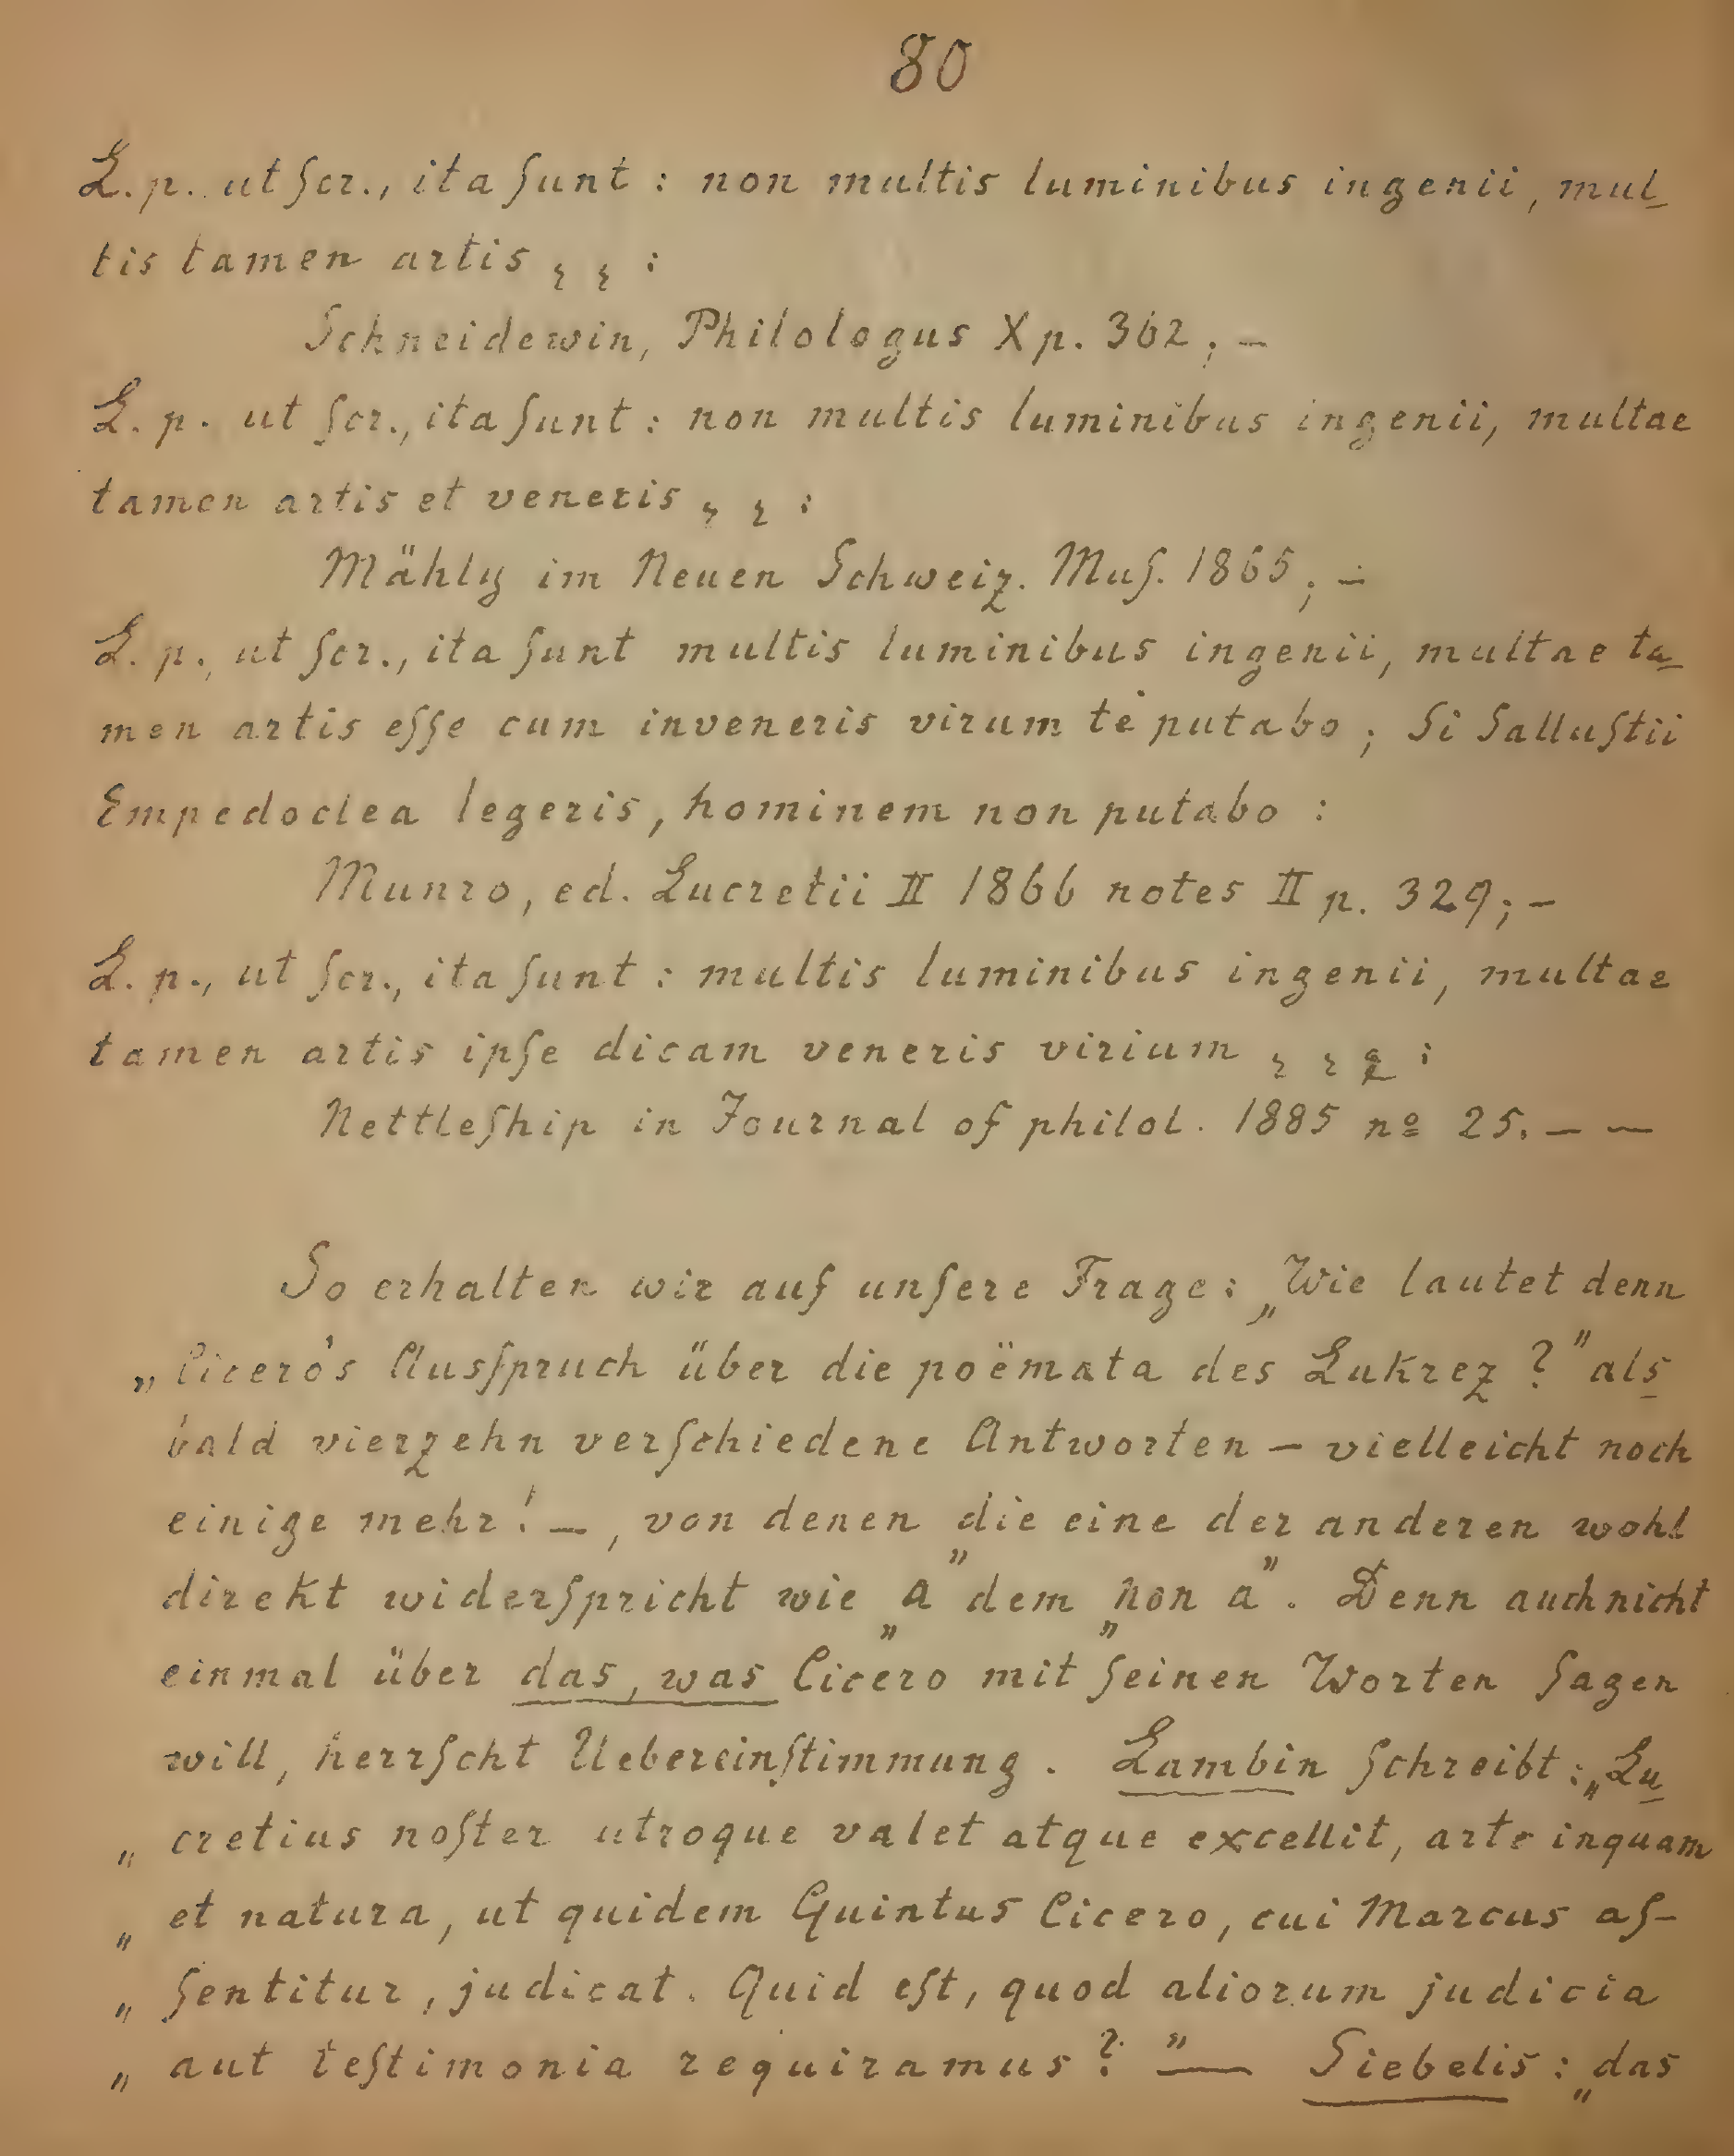 80
L. p. ut ſcr., ita ſunt : non multis luminibus ingenii, mul-
tis tamen artis ⁊ ⁊ :
Schneidewin, Philologus X p. 362 ; –
L. p. ut ſcr., ita ſunt : non multis luminibus ingenii, multae
tamen artis et veneris ⁊ ⁊ :
Mähly im Neuen Schweiz. Muſ. 1865 ; –
L. p., ut ſcr., ita ſunt multis luminibus ingenii, multae ta-
men artis eſſe cum inveneris virum te putabo ; Si Salluſtii
Empedoclea legeris, hominem non putabo :
Munro, ed. Lucretii II 1866 notes II p. 329 ; –
L. p., ut ſcr., ita ſunt : multis luminibus ingenii, multae
tamen artis ipſe dicam veneris virium ⁊ ⁊ :
Nettleſhip in Journal of philol. 1885 nº 25. – –
So erhalten wir auf unſere Frage : „Wie lautet denn
„Cicero's Ausſpruch über die poëmata des Lukrez ?" als-
bald vierzehn verſchiedene Antworten – vielleicht noch
einige mehr ! –, von denen die eine der anderen wohl
direkt widerſpricht wie „a" dem „non a". Denn auch nicht
einmal über das, was Cicero mit ſeinen Worten ſagen
will, herrſcht Uebereinſtimmung . Lambin ſchreibt : „Lu-
„cretius noſter utroque valet atque excellit, arte inquam
„et natura, ut quidem Quintus Cicero, cui Marcus aſ-
„ſentitur, judicat. Quid eſt, quod aliorum judicia
„aut teſtimonia requiramus ?" — Siebelis : „das